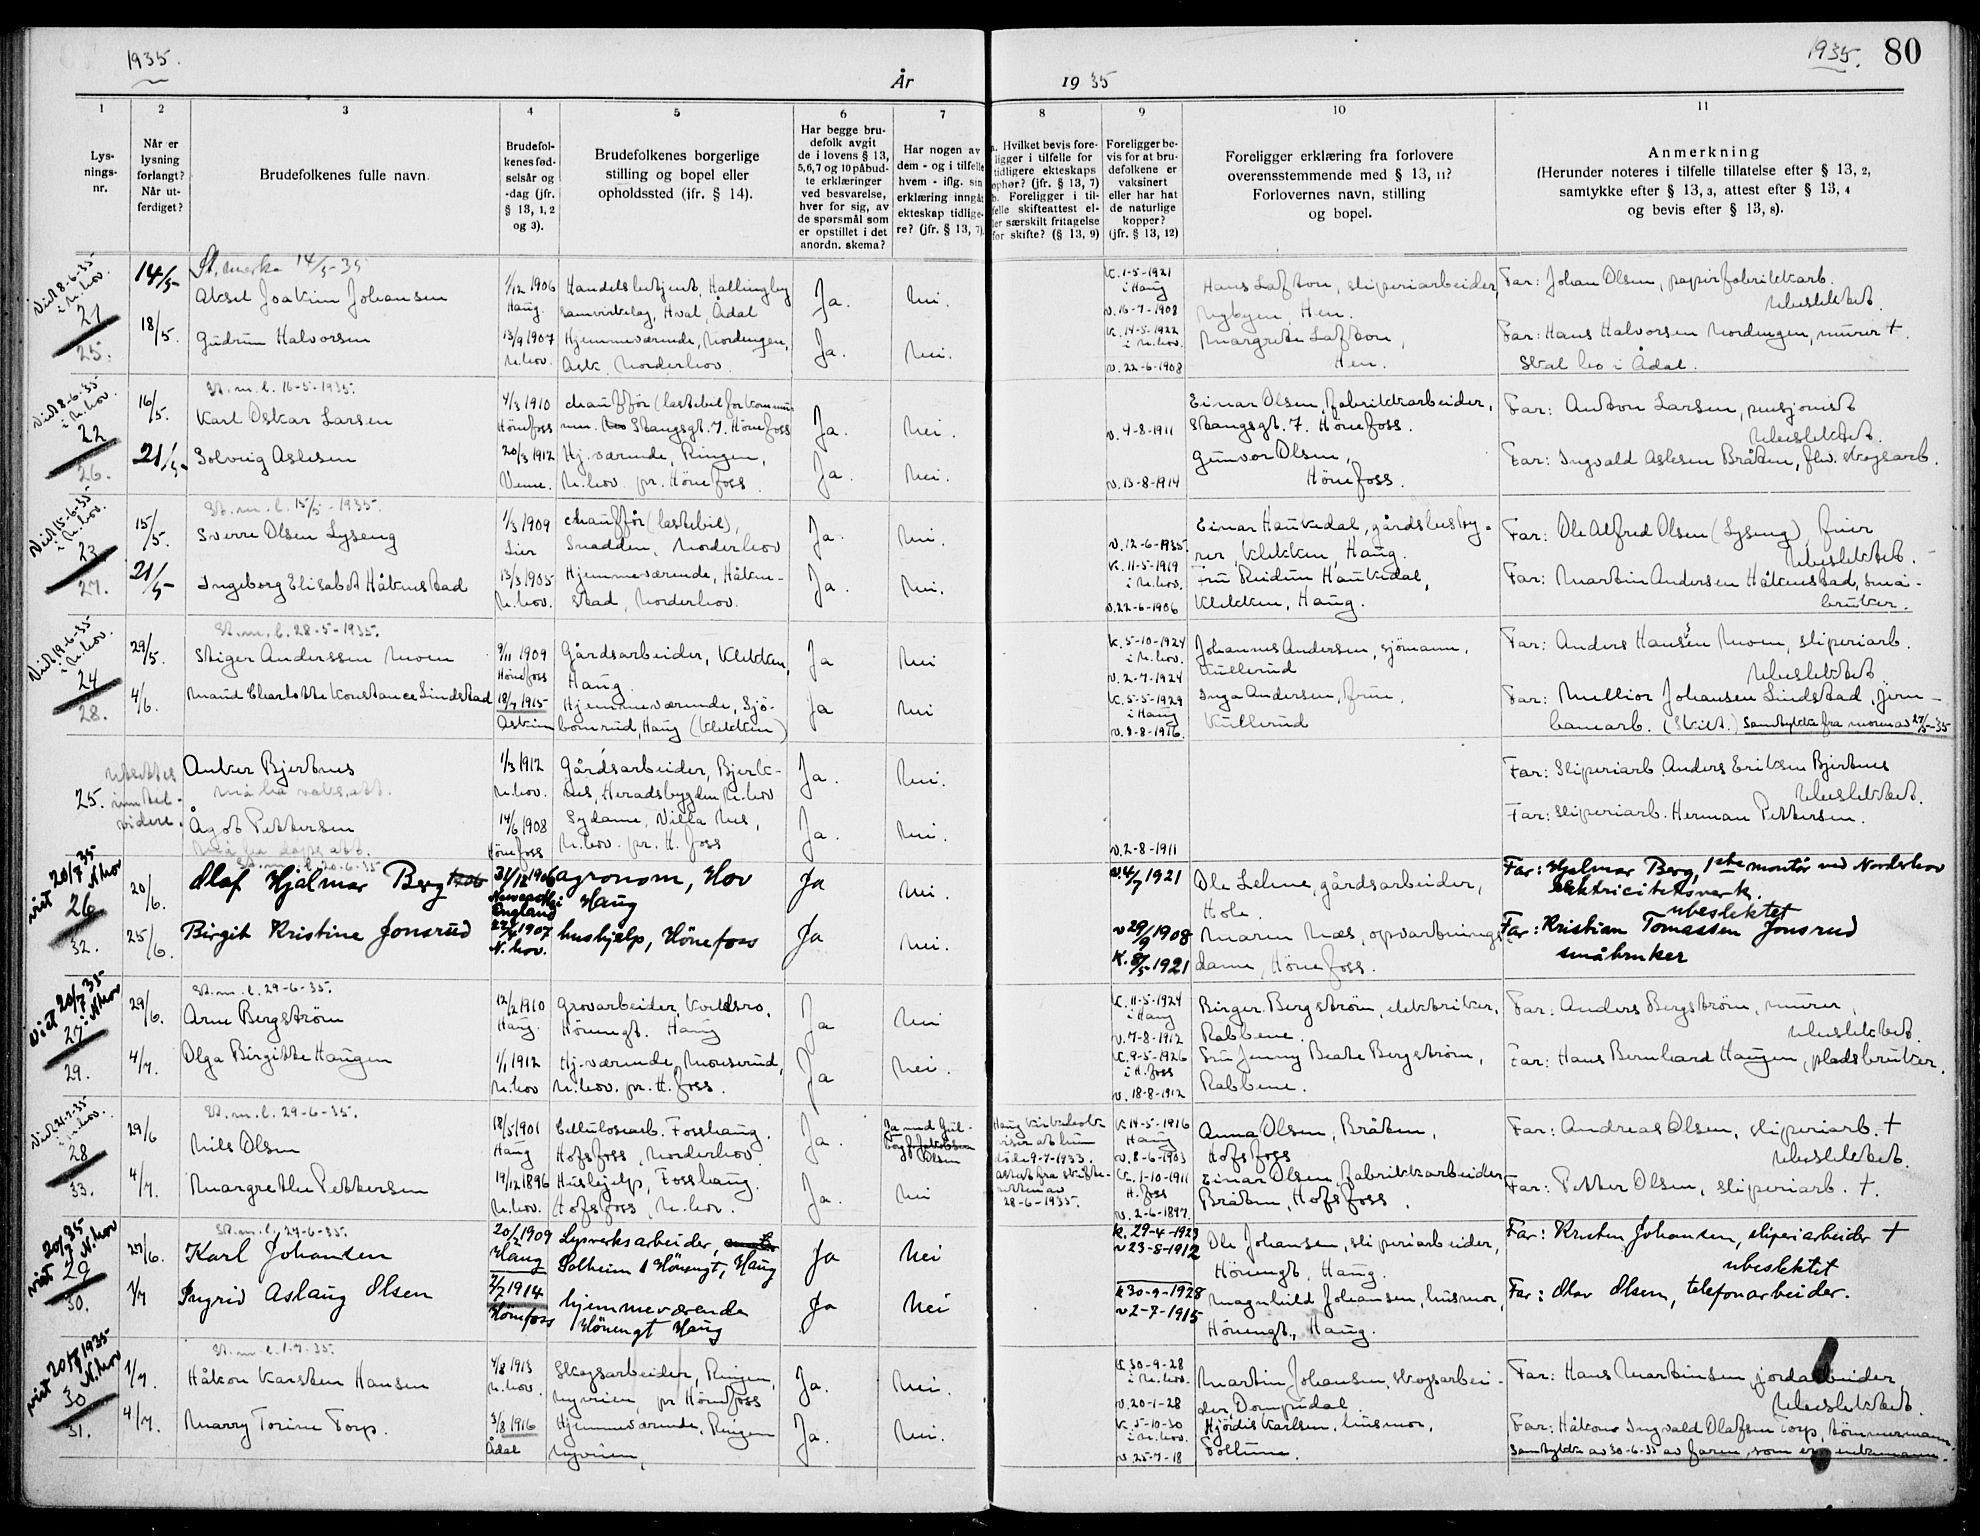 1935.
År
1935
1935. 80
1
2
3
4
5
6
7
8
9
10
11
Lysningsnr.
Når er lysning forlangt? Når utferdiget?
Brudefolkenes fulle navn.
Brudefolkenes fødselsår og -dag (jfr. § 13, 1, 2 og 3).
Brudefolkenes borgerlige stilling og bopel eller opholdssted (jfr. § 14).
Har begge brudefolk avgit de i lovens § 13, 5,6,7 og 10 påbudte erklæringer ved besvarelse, hver for sig, av de spørsmål som er opstillet i det anordn. skema?
Har nogen av dem - og i tilfelle hvem - iflg. sin erklæring inngåt ekteskap tidligere? (jfr. § 13, 7).
a. Hvilket bevis foreligger i tilfelle for tidligere ekteskaps ophør? (jfr. § 13, 7) b. Foreligger i tilfelle skifteattest eller særskilt fritagelse for skifte? (§ 13, 9)
Foreligger bevis for at brudefolkene er vaksinert eller har hat de naturlige kopper? (jfr. § 13, 12)
Foreligger erklæring fra forlovere overensstemmende med § 13, 11? Forlovernes navn, stilling og bopel.
Anmerkning
(Herunder noteres i tilfelle tillatelse efter § 13, 2, samtykke efter § 13, 3, attest efter § 13, 4 og bevis efter § 13, 8).
Viet 8-6-35 i N.hov. 21 25.
14/5 St.merke 14/5-35
Aksel Joakim Johansen 1/12 1906 Haug. Handelsbetjent, Hallingby samvirkelag, Hval, Ådal Ja. Nei. K. 1-5-1921 i Haug v. 16-7-1908 Hans Lafton, sliperiarbeider, Nybyen, Hen. Far: Johan Olsen, papirfabrikkarb. Ubeslektet.
18/5. Gudrun Halvorsen 13/9 1907 N.hov. Hjemmeværende, Nordengen, Ask, Norderhov. Ja. Nei. K. 14-5-1922 i N.hov. v. 22-6-1908 Margrete Lafton, Hen. Far: Hans Halvorsen Nordengen, murer †. Skal bo i Ådal.
Viet 8-6-35 i N.hov. 22 26.
St.m.l. 16-5-1935.
16/5. Karl Oskar Larsen 4/3 1910 Hönefoss chaufför (lastebil for kommunen. Stangsgt. 7. Hönefoss Ja. Nei. v. 4-8-1911 Einar Olsen, fabrikkarbeider, Stangsgt. 7. Hönefoss. Far: Anton Larsen, pensjonist Ubeslektet.
21/5. Solveig Aslesen 20/3 1912 Veme. Hj.værende, Ringen, N.hov. pr. Hönefoss. Ja. Nei. v. 13-8-1914 Gunvor Olsen, Hönefoss. Far: Ingvald Aslesen Bråten, flw. skogsarb.
Viet 15-6-35 i N.hov. 23 27.
St.m.l. 15/5-1935.
15/5. Sverre Olsen Lyseng 1/3 1909 Lier chaufför (lastebil), Snadden, Norderhov Ja. Nei. v. 12-6-1935 Einar Haukedal, gårdsbestyrer, Klekken, Haug. Far: Ole Alfred Olsen (Lyseng) Ubeslektet.
21/5 Ingeborg Elisabet Håkenstad 13/3 1905 N.hov. Hjemmeværende, Håkenstad, Norderhov. Ja. Nei. K. 11-5-1919 i N.hov. v. 22-6-1906 Fru Reidun Haukedal, Klekken, Haug. Far: Martin Andersen Håkenstad, småbruker.
Viet 19-6-35 i N.hov. 24 28.
St.m.l. 28-5-1935.
29/5. Stiger Anderssen Moen 9/11 1909 Hönefoss Gårdsarbeider, Klekken, Haug. Ja Nei K. 5-10-1924 i N.hov. v. 2-7-1924 Johannes Andersen, sjömann, Kullerud Far: Anders Hansen Moen, sliperiarb. Ubeslektet.
4/6. Maud Charlotte Konstance Lindstad 18/7 1915 Askim Hjemmeværende, Sjöbonrud, Haug (Klekken) Ja Nei K. 5-5-1929 i Haug v. 8-8-1916. Inga Andersen, frue, Kullerud Far: Mellior Johansen Lindstad, jernbanearb. (Skilt.) Samtykke fra moren av 27/5-35
25. Utsettes inntil videre. Anker Bjertnes må ha vaks.att. 1/3 1912 N.hov. Gårdsarbeider, Bjerknes, Heradsbygden N.hov Ja. Nei. Far: Sliperiarb. Anders Eriksen Bjertnes Ubeslektet.
Ågot Pettersen Må ha dåps att. 14/6 1908 Hönefoss Sydame, Villa Nes, N.hov. pr. H.foss Ja. Nei. v. 2-8-1911 Far: sliperiarb. Herman Pettersen.
viet 20/7 35 N.hov 26 32.
St.m.l. 20-6-35
20/6. Olaf Hjalmar Berg 31/12 1906 Newcastle i England agronom, Hov Haug Ja Nei. v. 4/7 1921 Ole Lehne, gårdsarbeider, Hole. Far: Hjalmar Berg, 1ste montör ved Norderhov elektricitetsverk. ubeslektet
25/6. Birgit Kristine Jonsrud 27/7 1907 N.hov. hushjelp, Hönefoss Ja Nei. v 29/9 1908 K. 8/5 1921 Maren Næs, opvartningsdame, Hönefoss. Far: Kristian Tomassen Jonsrud småbruker
viet 20/7 35 i N.hov 27 29.
St.m.l. 29-6-35.
29/6. Arne Bergström 12/2 1910 Haug. Grovarbeider, Hönengt. Haug Ja Nei K. 11-5-1924 i Haug v. 7-8-1912 Birger Bergström, elektriker, Rabbene. Far: Anders Bergström, murer, Ubeslektet.
4/7. Olga Birgitte Haugen 1/1 1912 N.hov Hj.værende, Monserud, N.hov. pr. H.foss. Ja Nei. K. 9-5-1926 i H.foss v. 18-8-1912 Fru Jenny Beate Bergström, Rabbene. Far: Hans Bernhard Haugen, pladsbruker.
Viet 21-7-35 i N.hov. 28 33.
St.m.l. 29-6-35.
29/6 Nils Olsen 18/5 1901 Haug Cellulosearb. Fosshaug. Hofsfoss, Norderhov. Ja. Ja med Gulborg Jakobsen Olsen Haug kirkebok viser at hun döde 9-7-1933. attest fra skifteretten av 28-6-1935. K. 14-5-1916 Haug v. 8-6-1903 Anna Olsen, Bråten, Hofsfoss Far: Andreas Olsen, sliperiarb. † Ubeslektet.
4/7. Margrethe Pettersen 19/12 1896 N.hov. Hushjelp, Fosshaug. Hofsfoss, N.hov. Ja. Nei K. 1-10-1911 H.foss v. 2-6-1897. Einar Olsen, fabrikkarbeider, Bråten, Hofsfoss. Far: Petter Olsen, sliperiarb. †.
viet 20/7 35 N.hov 29 30.
St.m.l. 27-6-35.
27/6. Karl Johansen 20/2 1909 Haug Lysverksarbeider, Solheim i Hönengt, Haug Ja Nei K. 29-4-1923 v 23-8-1912 Ole Johansen, sliperiarbeider, Hönengt, Haug. Far: Kristen Johansen, sliperiarbeider † ubeslektet
1/7 Ingrid Aslaug Olsen 2/2 1914 Hönefoss hjemmeværende Hönengt Haug Ja Nei K 30-9-1928 v 2-7-1915 Magnhild Johansen, husmor, Hönengt., Haug. Far: Olav Olsen, telefonarbeider.
viet 20/7 1935 N.hov 30 31.
St.m.l. 1-7-35.
1/7. Håkon Karsten Hansen 4/8 1913 N.hov. Skogsarbeider, Ringen, Nyveien, pr Hönefoss Ja. Nei. K 30-9-28 i N.hov. v. 20-1-28 Martin Johansen, skogsarbeider, Dompudal. Far: Hans Martinsen, jordarbeider Ubeslektet.
4/7. Marry Torine Torp. 3/8 1916 Ådal Hjemmeværende, Ringen Nyveien, Ja. Nei. K. 5-10-30 i N.hov. v 25-7-18 Hjördis Karlsen, husmor, Follum. Far: Håkon Ingvald Olafsen Torp, tömmermann. Samtykke av 30-6-35 av faren, som er enkemann.